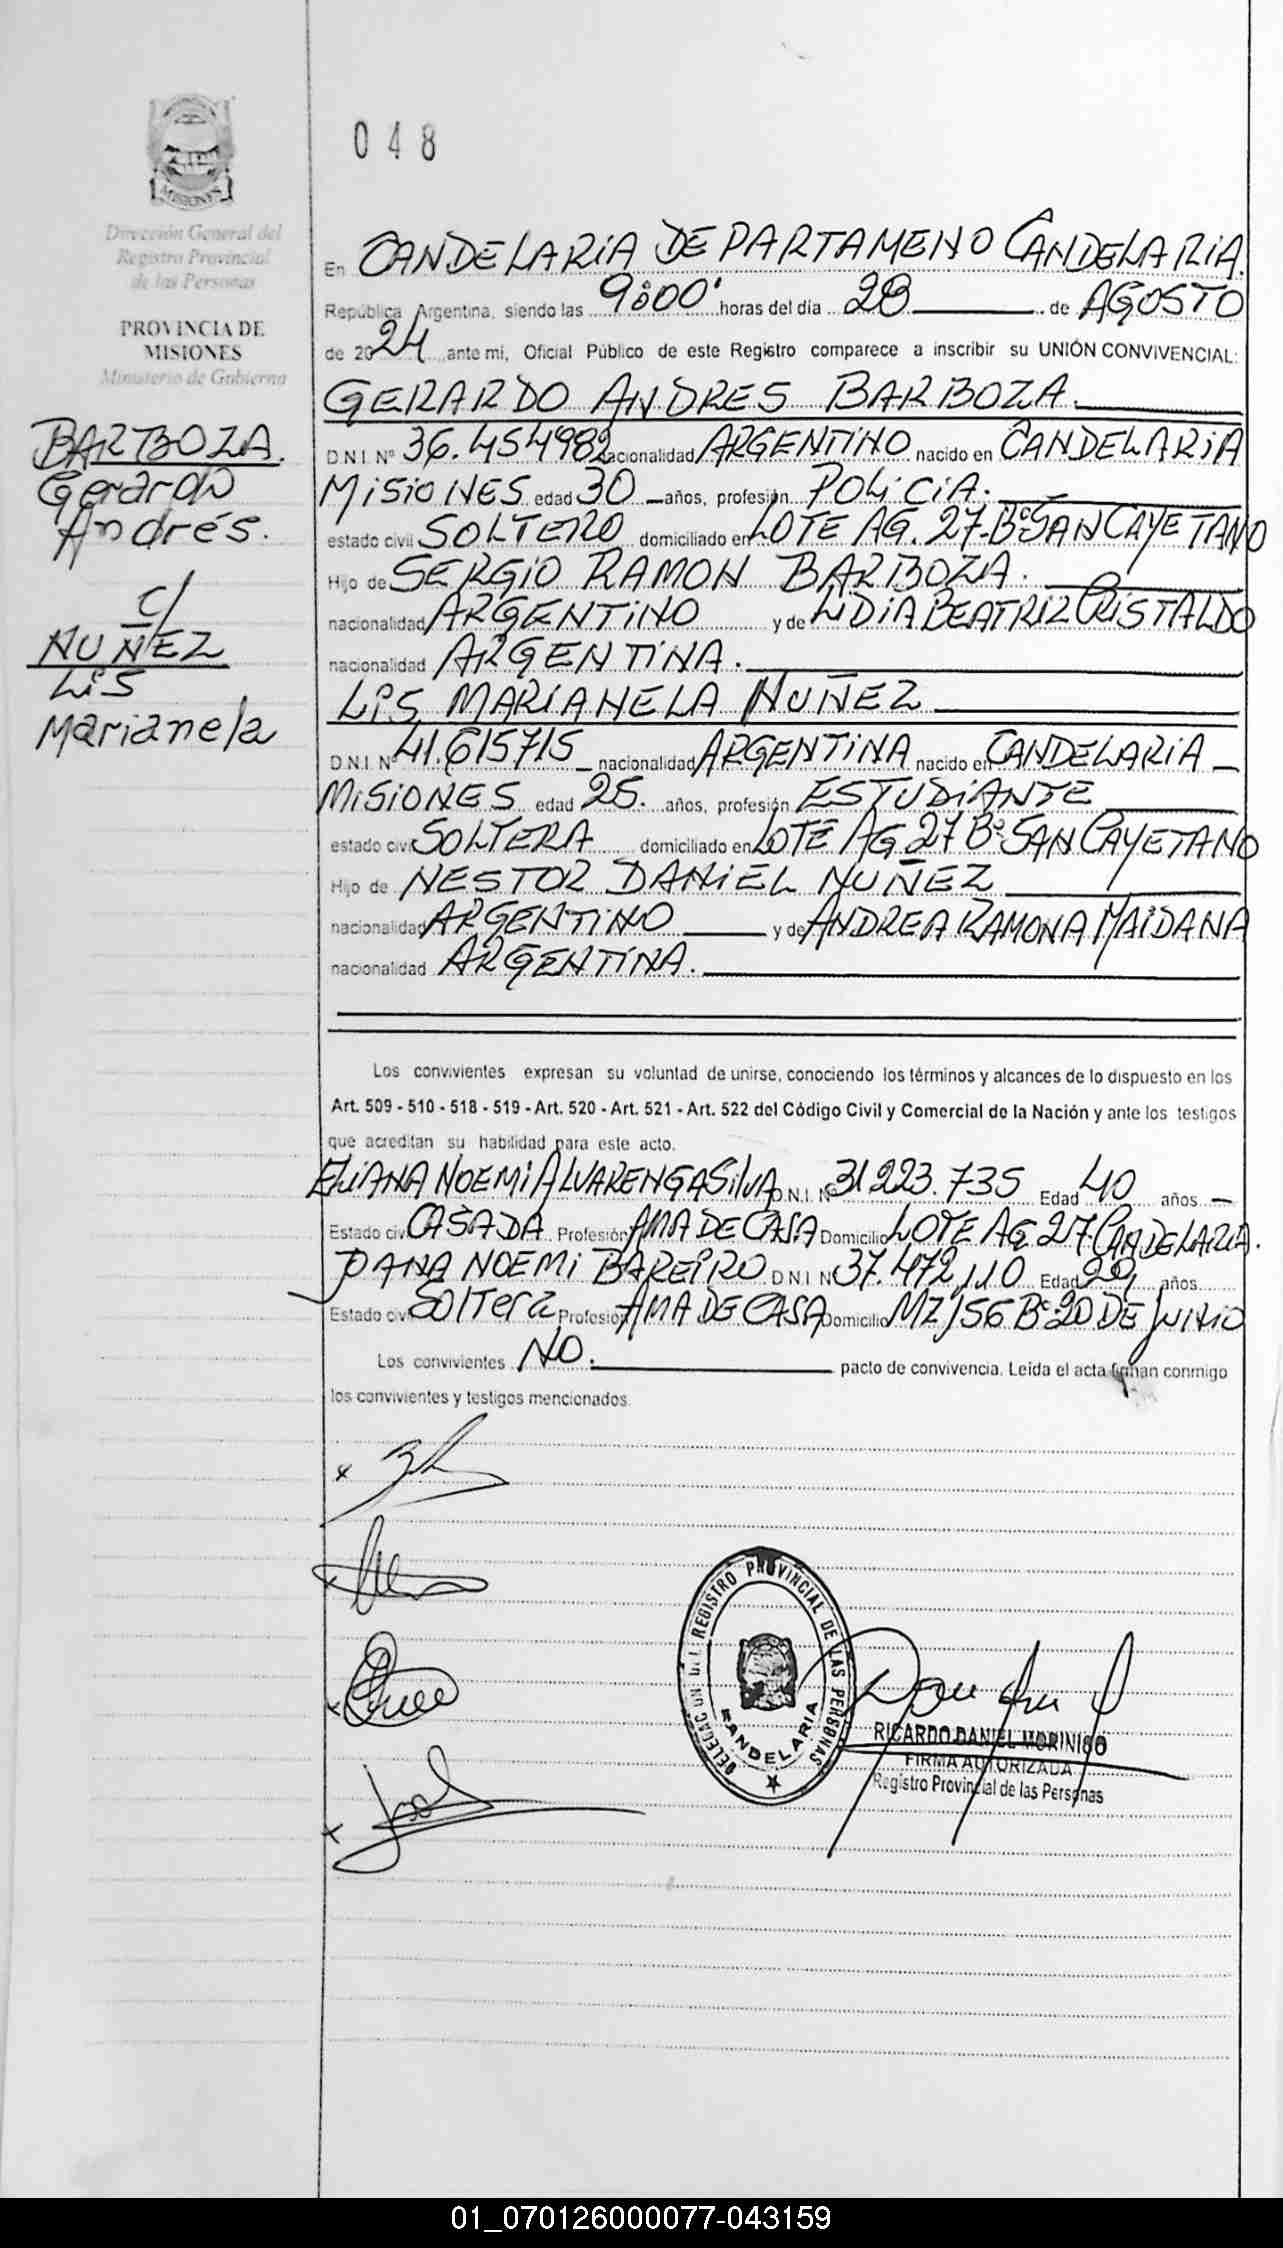 048
MISIONES
Dirección General del
Registro Provincial
de las Personas
PROVINCIA DE
MISIONES
Ministerio de Gobierno
BARBOZA.
Gerardo
Andrés.
C/
NUÑEZ
Lis
Marianela
En CANDELARIA DEPARTAMENO CANDELARIA.
República Argentina, siendo las 9:00' horas del día 28 de AGOSTO
de 2024 ante mi, Oficial Público de este Registro comparece a inscribir su UNIÓN CONVIVENCIAL:
GERARDO ANDRES BARBOZA.
D.N.I. Nº 36.454982 nacionalidad ARGENTINO nacido en CANDELARIA
MISIONES edad 30 años, profesión POLICIA.
estado civil SOLTERO domiciliado en LOTE AG. 27-Bº SAN CAYETANO
Hijo de SERGIO RAMON BARBOZA.
nacionalidad ARGENTINO y de LIDIA BEATRIZ CRISTALDO
nacionalidad ARGENTINA.
LIS MARIANELA NUÑEZ
D.N.I. Nº 41.615715 nacionalidad ARGENTINA nacido en CANDELARIA
MISIONES edad 25. años, profesión ESTUDIANTE
estado civil SOLTERA domiciliado en LOTE AG 27 Bº SAN CAYETANO
Hijo de NESTOR DANIEL NUÑEZ
nacionalidad ARGENTINO y de ANDREA RAMONA MAIDANA
nacionalidad ARGENTINA.
Los convivientes expresan su voluntad de unirse, conociendo los términos y alcances de lo dispuesto en los
Art. 509 - 510 - 518 - 519 - Art. 520 - Art. 521 - Art. 522 del Código Civil y Comercial de la Nación y ante los testigos
que acreditan su habilidad para este acto.
ELIANA NOEMI ALVARENGA SILVA D.N.I. Nº 31.223.735 Edad 40 años
Estado civil CASADA Profesión AMA DE CASA Domicilio LOTE AG 27 CANDELARIA.
JOANA NOEMI BAREIRO D.N.I Nº 37.472,110 Edad años
Estado civil SOLTERA Profesión AMA DE CASA Domicilio MZ 156 Bº 20 DE JUNIO
Los convivientes NO. pacto de convivencia. Leída el acta firman conmigo
los convivientes y testigos mencionados.
DELEGACION DEL REGISTRO PROVINCIAL DE LAS PERSONAS
CANDELARIA
RICARDO DANIEL MORINIGO
FIRMA AUTORIZADA
Registro Provincial de las Personas
01_070126000077-043159